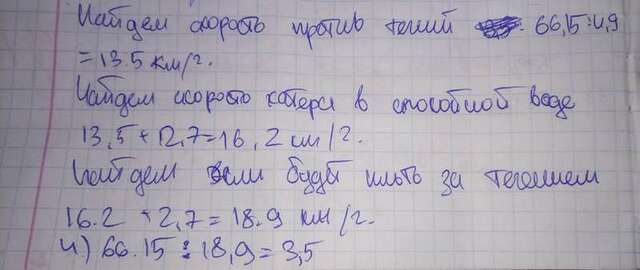 Найдем скорость против тений 66,15:4,9
=13.5 км/г.
Найдем скорость катера в спокойной воде
13,5+2,7=16,2 см/г.
Найдем если будет плыть за течением
16.2+2,7=18.9 км/г.
4) 66.15:18,9=3,5